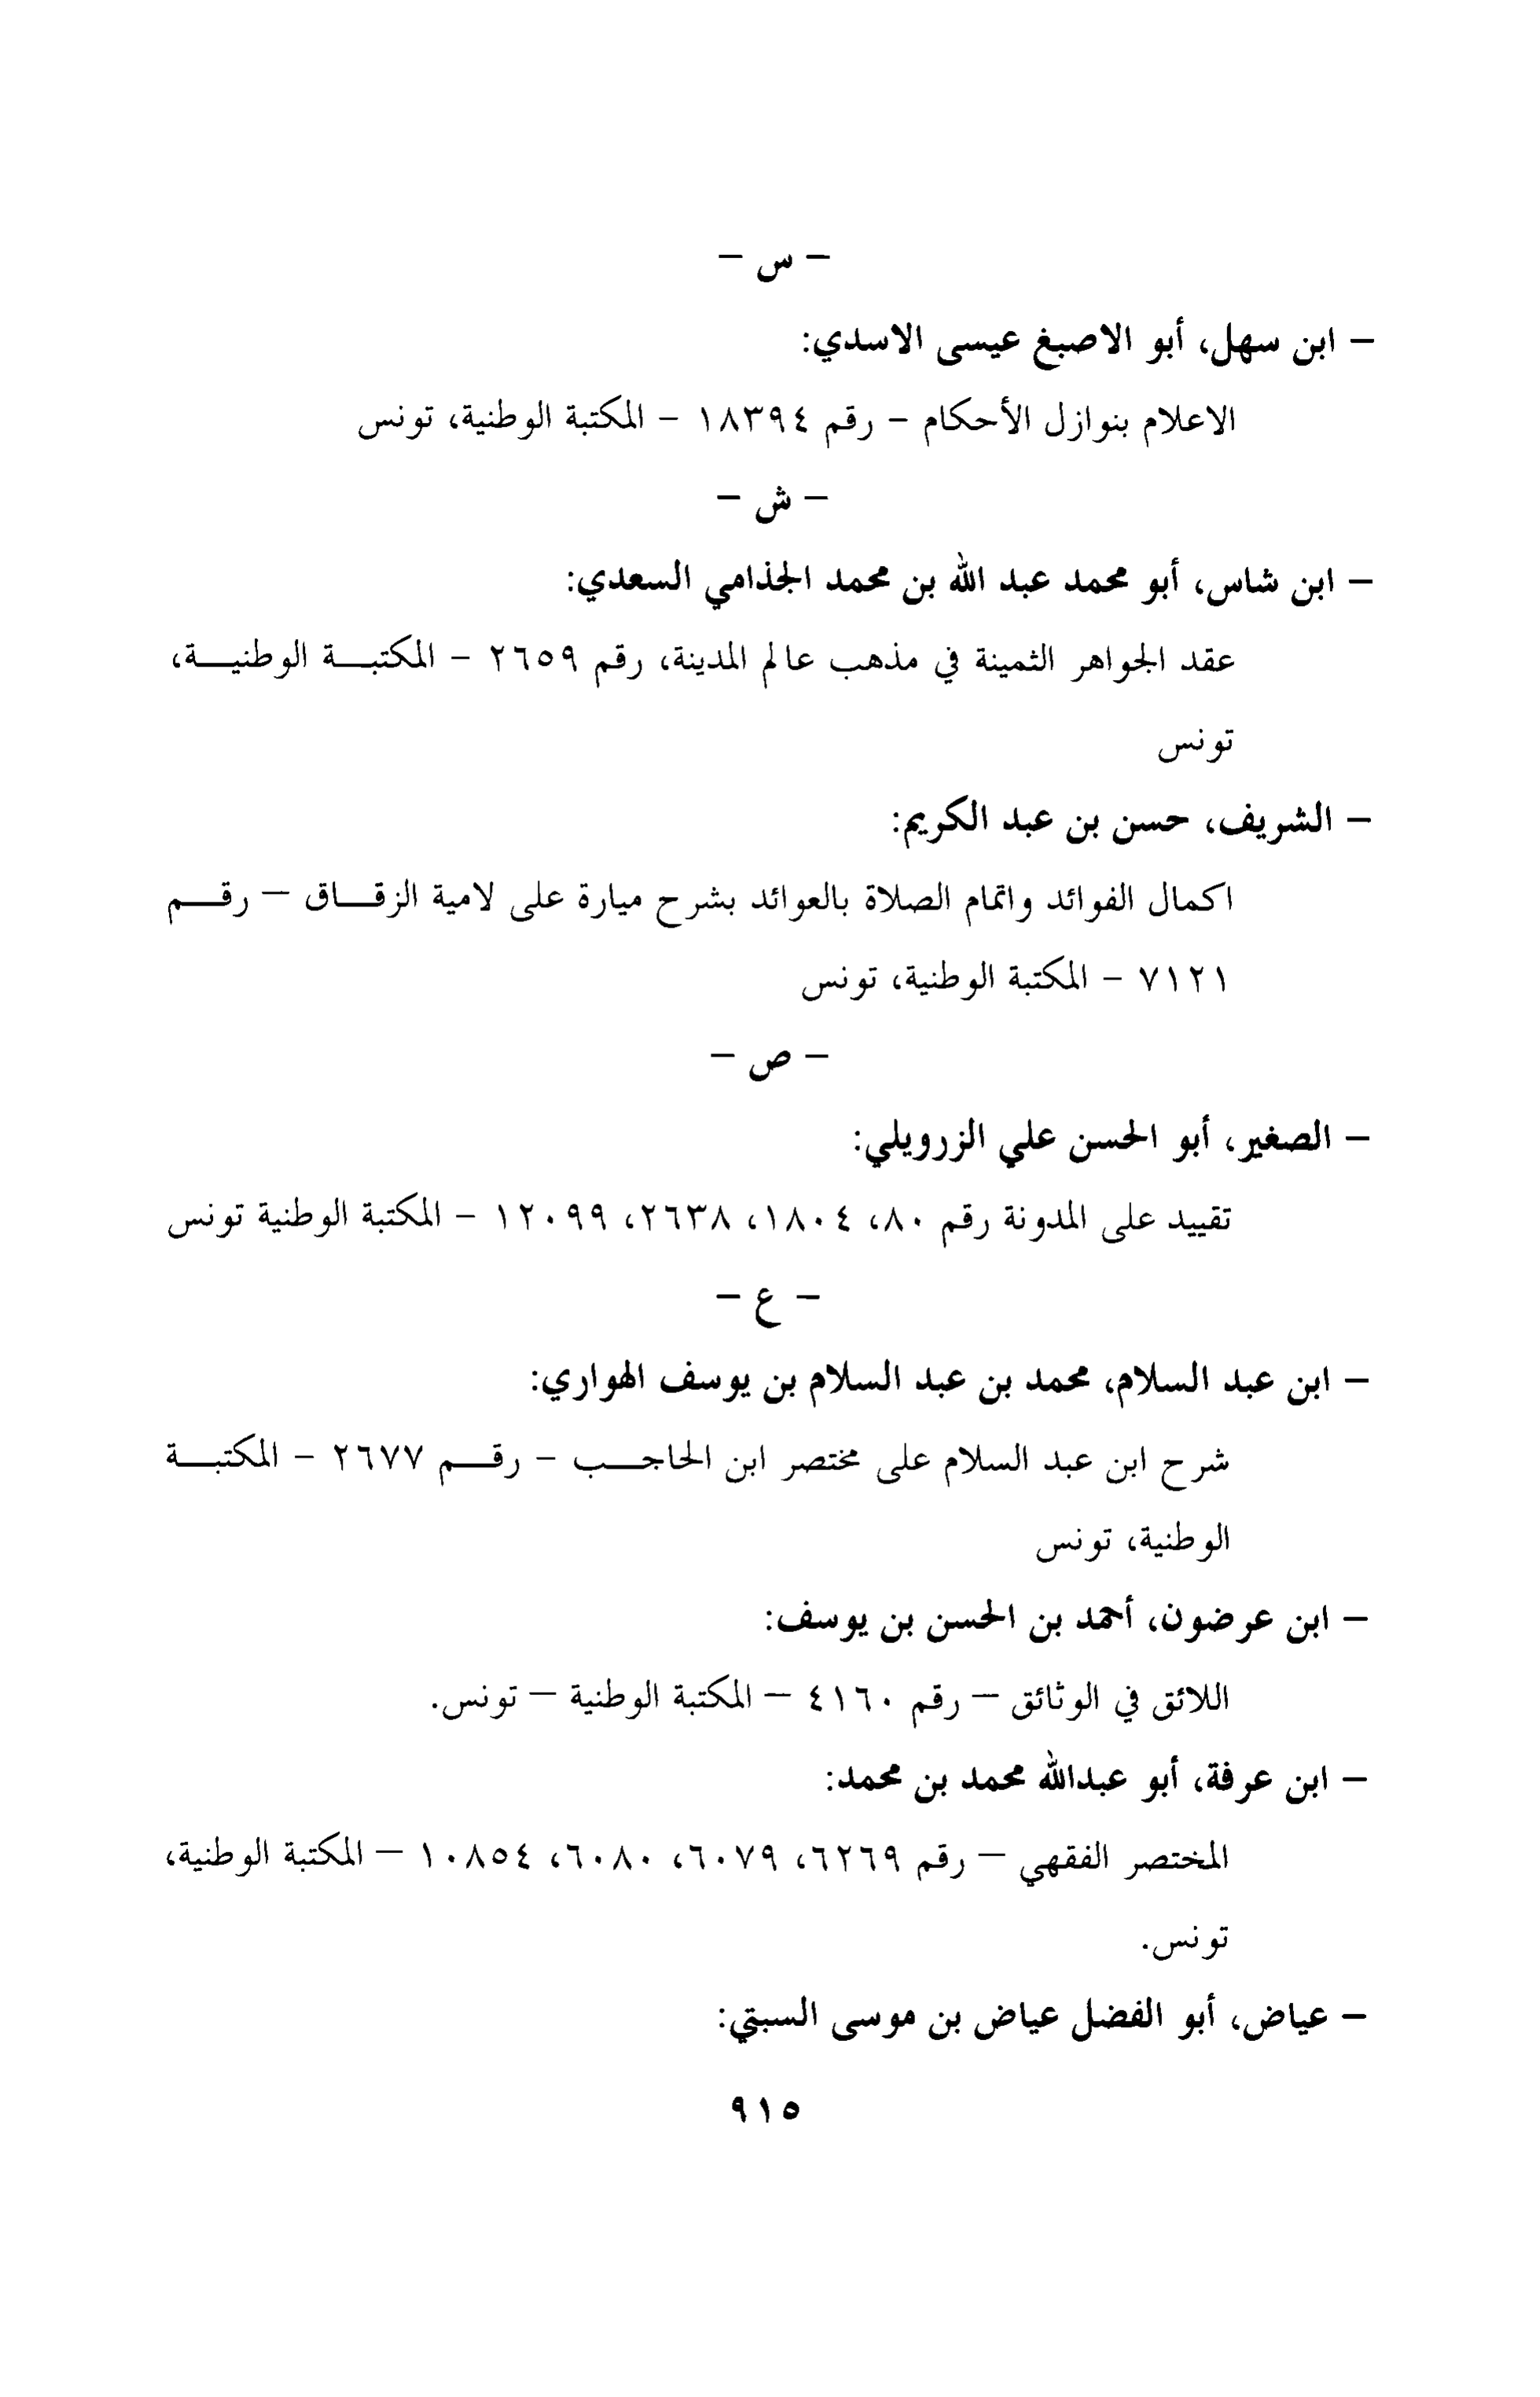 - س -
- ابن سهل، أبو الاصبغ عيسى الاسدي:
الاعلام بنوازل الأحكام - رقم ١٨٣٩٤ - المكتبة الوطنية، تونس
- ش -
- ابن شاس، أبو محمد عبد الله بن محمد الجذامي السعدي:
عقد الجواهر الثمينة في مذهب عالم المدينة، رقم ٢٦٥٩ - المكتبة الوطنية،
تونس
- الشريف، حسن بن عبد الكريم:
اكمال الفوائد واتمام الصلاة بالعوائد بشرح ميارة على لامية الزقاق – رقم
٧١٢١ - المكتبة الوطنية، تونس
- ص -
- الصغير، أبو الحسن علي الزرويلي:
تقييد على المدونة رقم ٨٠، ١٨٠٤، ٢٦٣٨، ١٢٠٩٩ - المكتبة الوطنية تونس
- ع -
- ابن عبد السلام، محمد بن عبد السلام بن يوسف الهواري:
شرح ابن عبد السلام على مختصر ابن الحاجب - رقم ٢٦٧٧ - المكتبة
الوطنية، تونس
- ابن عرضون، أحمد بن الحسن بن يوسف:
اللائق في الوثائق – رقم ٤١٦٠ – المكتبة الوطنية – تونس.
- ابن عرفة، أبو عبدالله محمد بن محمد:
المختصر الفقهي – رقم ٦٢٦٩، ٦٠٧٩، ٦٠٨٠، ١٠٨٥٤ – المكتبة الوطنية،
تونس.
- عياض، أبو الفضل عياض بن موسى السبتي:
٩١٥